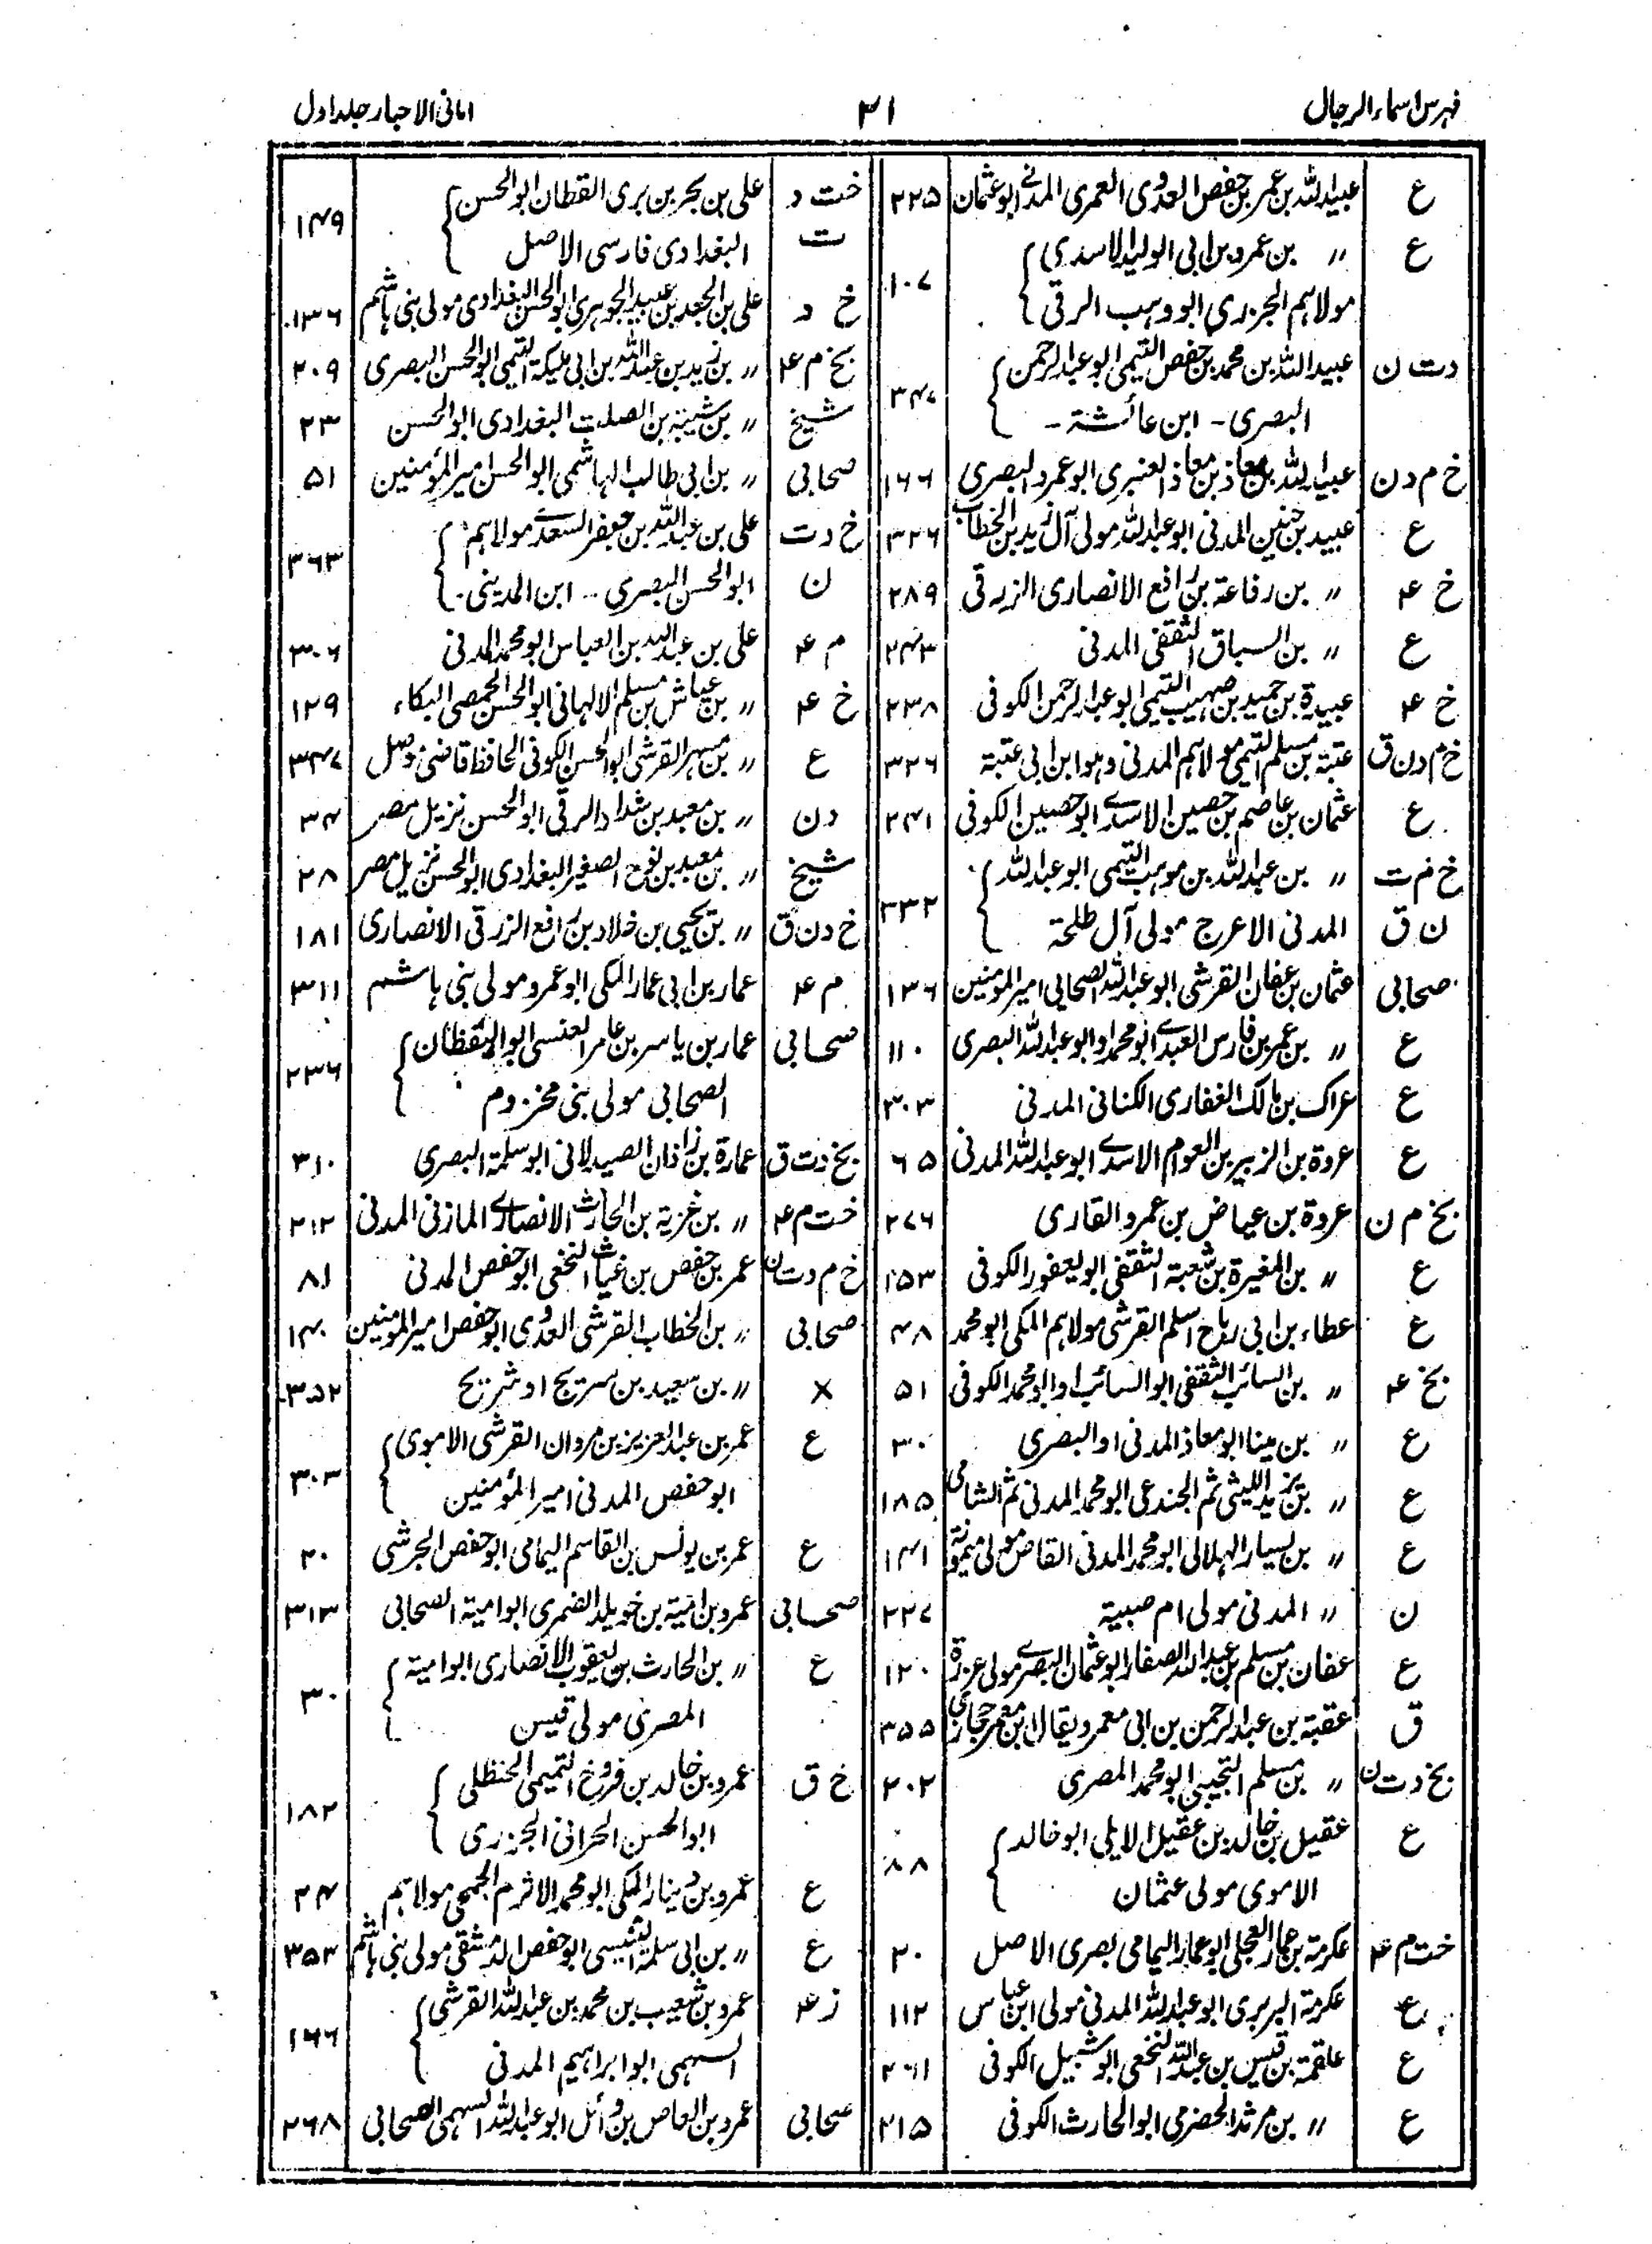 فہرس اسماء الرجال ۳۱ امانی الاحبار جلد اول
ع عبیداللہ بن عمر بن حفص العدوی العمری المدنی ابو عثمان ۲۲۵
ع 〃 بن عمرو بن ابی الولید الاسدی
مولاہم الجزری ابو وہب الرقی ۱۰۷
د ت ن عبید اللہ بن محمد بن حفص التیمی ابو عبدالرحمن
البصری - ابن عائشۃ - ۳۴۷
خ م د ن عبیداللہ بن معاذ بن معاذ العنبری ابو عمرو البصری ۱۶۶
ع عبید بن حنین المدنی ابو عبداللہ مولی آل زید بن الخطاب ۳۲۶
خ ۴ 〃 بن رفاعۃ بن رافع الانصاری الزرقی ۲۸۹
ع 〃 بن السباق الثقفی المدنی ۲۴۳
خ ۴ عبیدۃ بن حمید بن صہیب التیمی ابو عبدالرحمن الکوفی ۲۳۸
خ م د ن ق عتبۃ بن مسلم التیمی مولاہم المدنی وہو ابن ابی عتبۃ ۳۲۶
ع عثمان بن عاصم بن حصین الاسدی ابو حصین الکوفی ۲۴۱
خ م ت 〃 بن عبداللہ بن موہب التیمی ابو عبداللہ
ن ق المدنی الاعرج مولی آل طلحۃ ۳۳۲
صحابی عثمان بن عفان القرشی ابو عبداللہ الصحابی امیر المومنین ۱۳۶
ع 〃 بن عمر بن فارس العبدی ابو محمد او ابو عبداللہ البصری ۱۱۰
ع عراک بن مالک الغفاری الکنانی المدنی ۳۰۳
ع عروۃ بن الزبیر بن العوام الاسدی ابو عبداللہ المدنی ۶۵
بخ م ن عروۃ بن عیاض بن عمرو القاری ۲۷۶
ع 〃 بن المغیرۃ بن شعبۃ الثقفی ابو یعفور الکوفی ۲۵۳
ع عطاء بن ابی رباح اسلم القرشی مولاہم المکی ابو محمد ۴۸
بخ ۴ 〃 بن السائب الثقفی ابو السائب او ابو محمد الکوفی ۵۱
ع 〃 بن مینا ابو معاذ المدنی او البصری ۳۰
ع 〃 بن یزید اللیثی ثم الجندعی ابو محمد المدنی ثم الشامی ۱۸۵
ع 〃 بن یسار الہلالی ابو محمد المدنی القاص مولی میمونۃ ۱۴۱
ن 〃 المدنی مولی ام صبیۃ ۲۲۷
ع عفان بن مسلم بن عبداللہ الصفار ابو عثمان البصری مولی عزرۃ ۱۲۰
ق عقبۃ بن عبدالرحمن بن ابی معمر ویقال ابن معمر حجازی ۳۵۵
بخ د ت ن 〃 بن مسلم التجیبی ابو محمد المصری ۲۰۲
ع عقیل بن خالد بن عقیل الایلی ابو خالد
الاموی مولی عثمان ۸۸
خت م ۴ عکرمۃ بن عمار العجلی ابو عمار الیمامی بصری الاصل ۲۰
ع عکرمۃ البربری ابو عبداللہ المدنی مولی ابن عباس ۱۱۲
ع علقمۃ بن قیس بن عبداللہ النخعی ابو شبیل الکوفی ۲۶۱
ع 〃 بن مرثد الحضرمی ابو الحارث الکوفی ۲۱۵
خت د علی بن بحر بن بری القطان ابو الحسن
ت البغدادی فارسی الاصل ۱۴۹
خ د علی بن الجعد بن عبید الجوہری ابو الحسن البغدادی مولی بنی ہاشم ۱۳۶
بخ م ۴ 〃 بن زید بن عبداللہ بن ابی ملیکۃ التیمی ابو الحسن البصری ۲۰۹
شیخ 〃 بن شیبۃ بن الصلت البغدادی ابو الحسن ۲۳
صحابی 〃 بن ابی طالب الہاشمی ابو الحسن امیر المؤمنین ۵۱
خ د ت علی بن عبداللہ بن جعفر السعدی مولاہم
ن ابو الحسن البصری - ابن المدینی - ۳۶۳
م ۴ علی بن عبداللہ بن العباس ابو محمد المدنی ۳۰۶
خ ۴ 〃 بن عیاش بن مسلم الالہانی ابو الحسن الحمصی البکاء ۱۲۹
ع 〃 بن مسہر القرشی ابو الحسن الکوفی الحافظ قاضی موصل ۳۴۷
د ن 〃 بن معبد بن شداد الرقی ابو الحسن نزیل مصر ۳۴
شیخ 〃 بن معبد بن نوح الصغیر البغدادی ابو الحسن نزیل مصر ۲۸
خ د ن ق 〃 بن یحیی بن خلاد بن رافع الزرقی الانصاری ۱۸۱
م ۴ عمار بن ابی عمار المکی ابو عمرو مولی بنی ہاشم ۳۱۱
صحابی عمار بن یاسر بن عامر العنسی ابو الیقظان
الصحابی مولی بنی مخزوم ۲۳۶
بخ د ت ق عمارۃ بن زاذان الصیدلانی ابو سلمۃ البصری ۳۱۰
خت م ۴ 〃 بن غزیۃ بن الحارث الانصاری المازنی المدنی ۲۱۲
خ م د ت ن عمر بن حفص بن غیاث النخعی ابو حفص المدنی ۸۱
صحابی 〃 بن الخطاب القرشی العدوی ابو حفص امیر المومنین ۱۴۰
× 〃 بن سعید بن سریج او شریح ۳۵۲
ع عمر بن عبدالعزیز بن مروان القرشی الاموی
ابو حفص المدنی امیر المؤمنین ۳۰۳
ع عمر بن یونس بن القاسم الیمامی ابو حفص الجرشی ۲۰
صحابی عمرو بن امیۃ بن خویلد الضمری ابو امیۃ الصحابی ۳۱۳
ع 〃 بن الحارث بن یعقوب الانصاری ابو امیۃ
المصری مولی قیس ۳۰
خ ق عمرو بن خالد بن فروخ التمیمی الحنظلی
ابو الحسن الحرانی الجزری ۱۸۲
ع عمرو بن دینار المکی ابو محمد الاثرم الجمحی مولاہم ۲۴
ع 〃 بن ابی سلمۃ التنیسی ابو حفص الدمشقی مولی بنی ہاشم ۳۵۳
ز ۴ عمرو بن شعیب بن محمد بن عبداللہ القرشی
السہمی ابو ابراہیم المدنی ۱۶۶
صحابی عمرو بن العاص بن وائل ابو عبداللہ السہمی الصحابی ۲۶۸